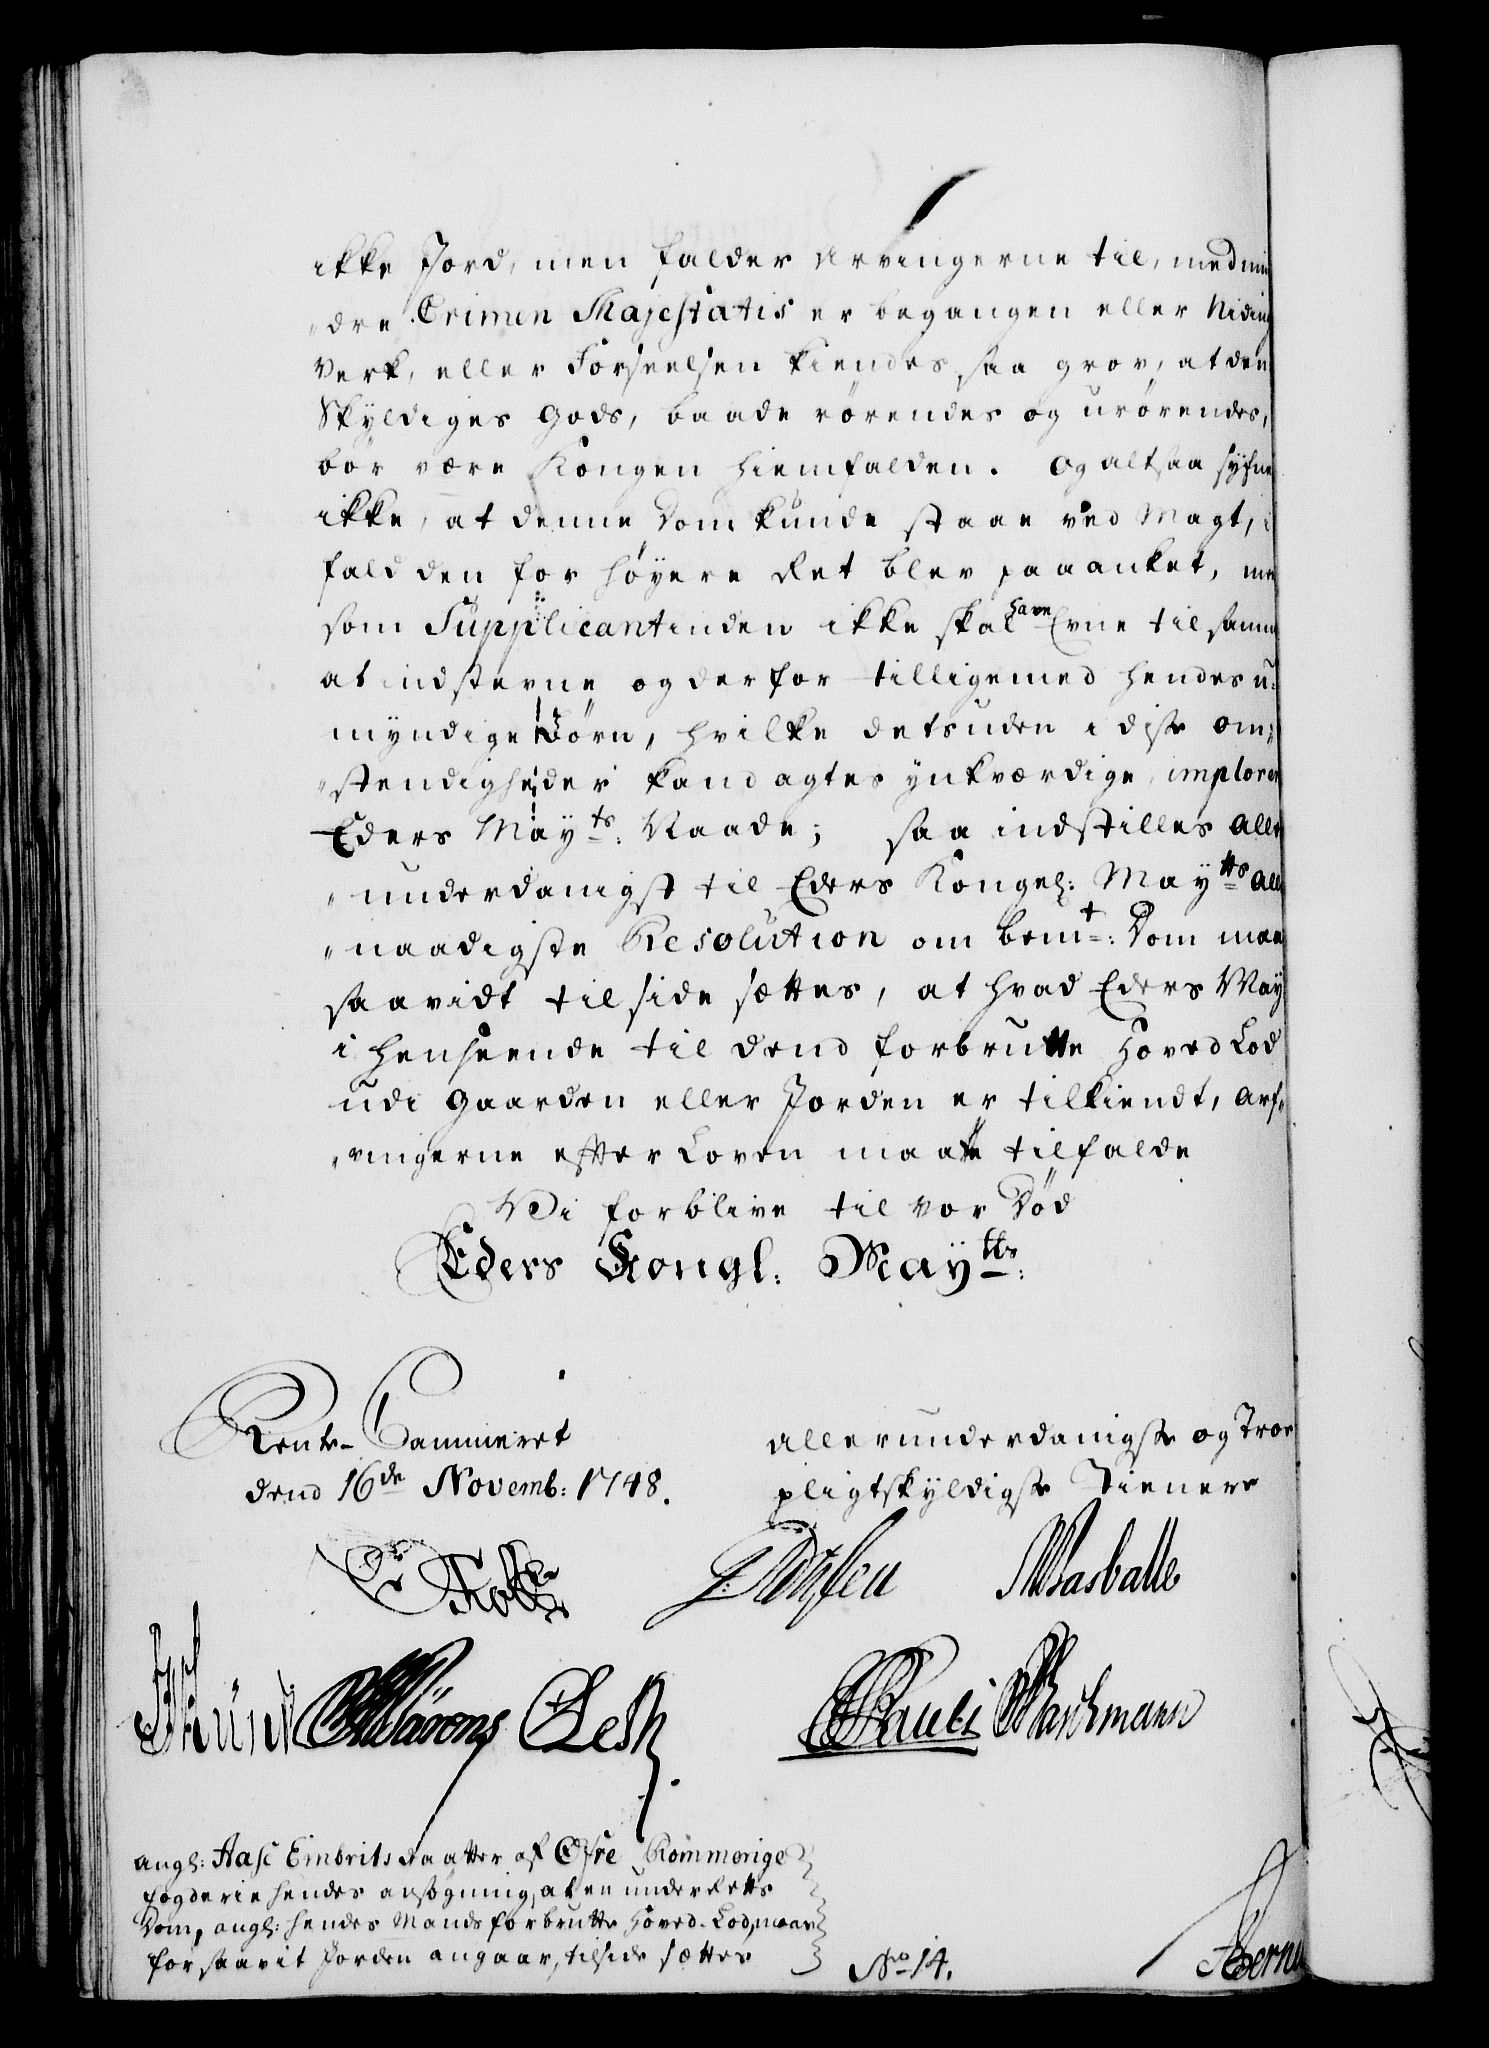 ikke Jord, men falder Arvingerne til, med min
„dre Crimen Majestatis er begangen eller Niding
Verk, eller Forseelsen kiendes saa grov, at den
Skyldiges Gods, baade rörendes og urörendes,
bör være Kongen hiemfalden. Og altsaa synes
ikke, at denne Dom kunde staae ved Magt, i
fald den for höyere Ret blev paaanket, men
som Supplicantinden ikke skal have Evne til samme
at indstevne og derfor tilligemed hendes u:
myndige Börn, hvilke detsuden i disse om„
„stendigheder kand agtes ynkværdige, implorer
Eders Mayts: Naade; saa indstilles aller
„underdanigst til Eders Kongel: Maytts aller
„naadigste Resolution om bemt: Dom maae
saavidt tilside sættes, at hvad Eders May
i henseende til dend forbrutte Hoved Lod
udi Gaarden eller Jorden er tilkiendt, Arf„
„vingerne efter Loven maatte tilfalde
Vi forblive til vor Död
Eders Kongl: Maytts:
Rente-Cammeret
dend 16de Novemb: 1748.
allerunderdanigste og Troe
pligtskyldigste Tienere
Masballe
Pauli Raschmann
angl: Aase Embrits daatter af Öfre Rommerige
fogderie hendes ansögning, at en underRetts
Dom, angl: hendes Mands forbrutte Hoved-Lod, maae
forsaavit Jorden angaar, tilside sættes
No 14.